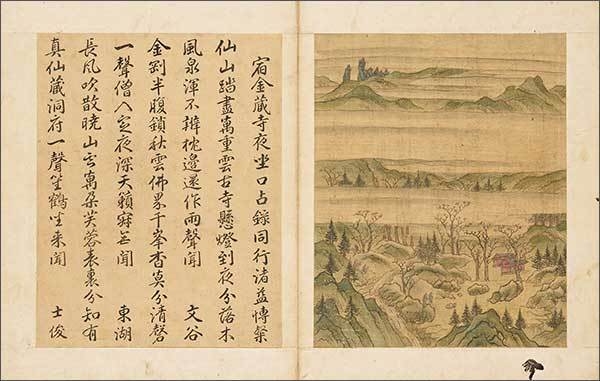 宿金藏寺夜坐口占錄同行諸益博粲
仙山踏盡萬重雲古寺懸燈到夜分落木
風泉渾不辨枕邊還作雨聲聞 文谷
金剛半腹鎖秋雲佛界千峯杳莫分清磬
一聲僧入定夜深天籟寂无聞 東湖
長風吹散曉山云萬朶芙蓉表裏分知有
真仙藏洞府一聲笙鶴坐来聞 士俊